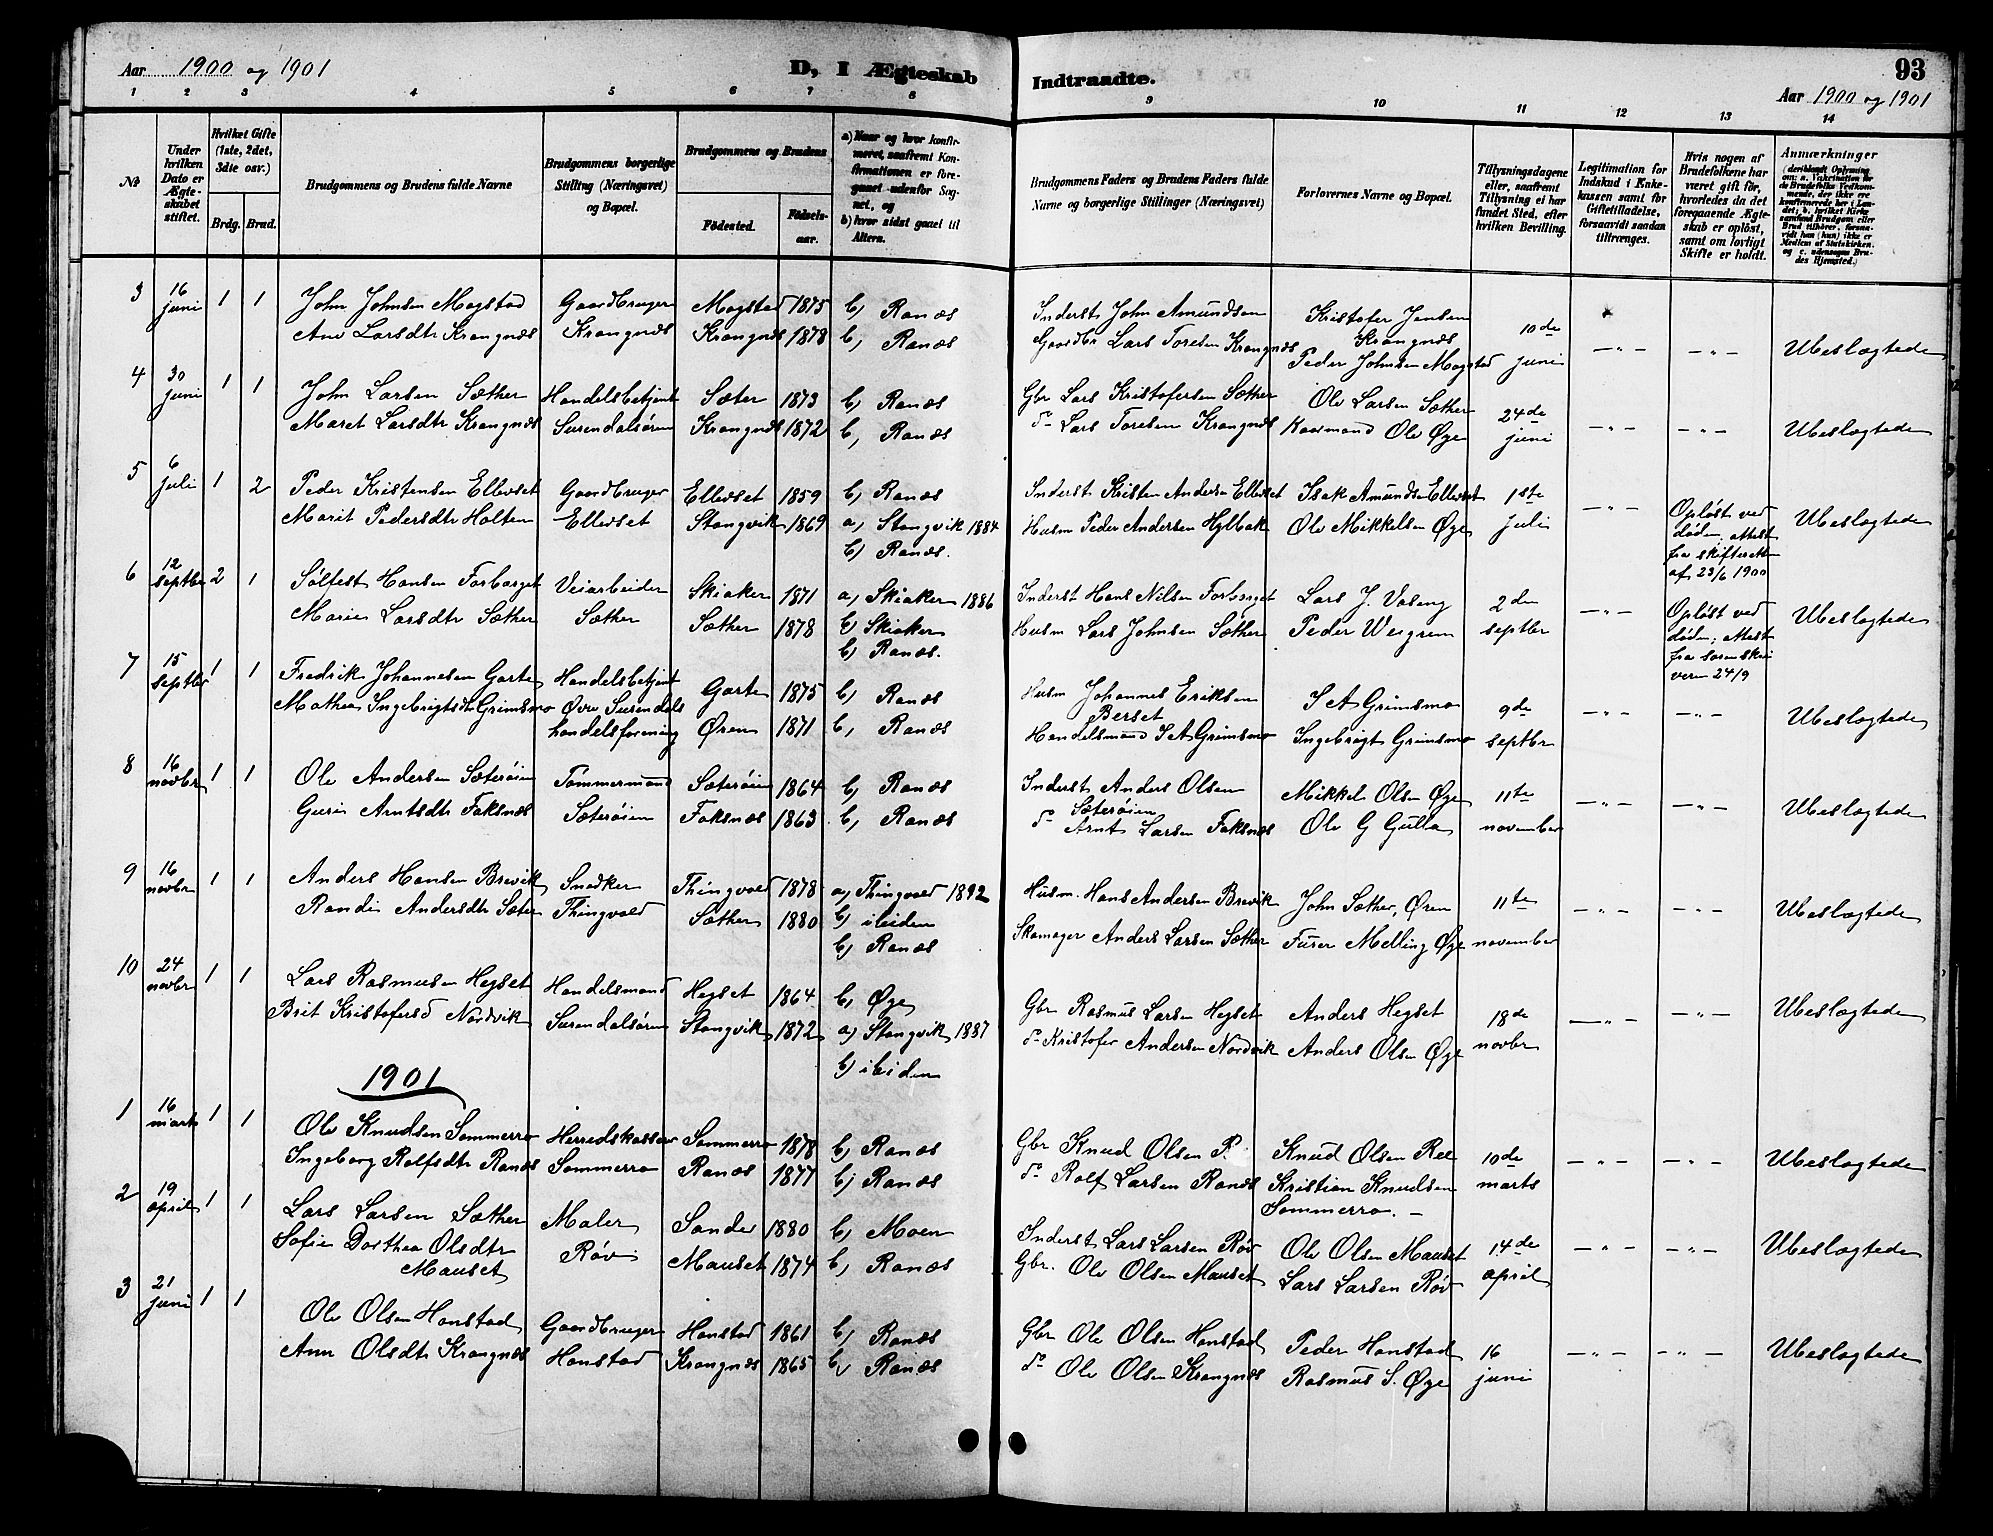 Aar 1900 og 1901
D, I Ægteskab
Indtraadte.
93
Aar 1900 og 1901
1 2 3 4 5 6 7 8 9 10 11 12 13 14
No
Under hvilken Dato er Ægteskabet stiftet.
Hvilket Gifte (1ste, 2det, 3die osv.)
Brdg. Brud.
Brudgommens og Brudens fulde Navne
Brudgommens borgerlige Stilling (Næringsvei) og Bopæl.
Brudgommens og Brudens
Fødested. Fødselsaar.
a) Naar og hvor konfirmeret, saafremt Konfirmationen er foregaaet udenfor Sognet, og
b) hvor sidst gaaet til Alters.
Brudgommens Faders og Brudens Faders fulde Navne og borgerlige Stillinger (Næringsvei)
Forlovernes Navne og Bopæl.
Tillysningsdagene eller, saafremt Tillysning ei har fundet Sted, efter hvilken Bevilling.
Legitimation for Indskud i Enkekassen samt for Giftetilladelse, forsaavidt saadan tiltrænges.
Hvis nogen af Brudefolkene har været gift før, hvorledes da det foregaaende Ægteskab er opløst, samt om lovligt Skifte er holdt.
Anmærkninger
3 16 juni 1 1 John Johnsen Mogstad Gaardbruger Mogstad 1875 b) Ranæs Inderst John Amundsen Kristofer Jensen
Ane Larsdtr Krangnæs Krangnæs Krangnæs 1878 b) Ranæs Gaardbr Lars Toresen Krangnæs Krangnæs 10de
Peder Johnsen Mogstad juni — " — — " — Ubeslægtede
4 30 juni 1 1 John Larsen Sæther Handelsbetjent Sæter 1873 b) Ranæs Gbr Lars Kristofersen Sæther Ole Larsen Sæther 24de
Maret Larsdtr Krangnæs Surendalsøren Krangnæs 1872 b) Ranæs do Lars Toresen Krangnæs Kaarmand Ole Øye juni — " — — " — Ubeslægtede
5 6 juli 1 2 Peder Kristensen Ellevset Gaardbruger Ellevset 1859 b) Ranæs Inderst Kristen Anderse Ellevset Isak Amundsen Ellevset 1ste
Marit Pedersdtr Holten Ellevset Stangvik 1869 a) Stangvik 1884 Husm Peder Andersen Hylbak Ole Mikkelsen Øye juli — " — Opløst ved Ubeslægtede
b) Ranæs. døden, attest
fra skifteretten
af 23/6 1900
6 12 septbr 2 1 Sølfest Hansen Forbærget Veiarbeider Skiaker 1871 a) Skiaker 1886 Inderst Hans Nilsen Forbærget Lars J. Vaseng 2den
Marie Larsdtr Sæther Sæther Sæther 1878 b) Skiaker Husm Lars Johnsen Sæther Peder septbr — " — Opløst ved Ubeslægtede
b) Ranæs. døden, attest
fra sorenskri
veren 24/9
7 15 septbr 1 1 Fredrik Johannesen Garte Handelsbetjent Garte 1875 b) Ranæs Husm Johannes Eriksen I A Grimsmo 9de
Mathea Ingebrigtsdtr Grimsmo Øvre Surendals Berset
handelsforening Øren 1871 b) Ranæs Handelsmand I A Grimsmo Ingebrigt Grimsmo septbr — " — — " — Ubeslægtede
8 16 novbr 1 1 Ole Andersen Sæterøien Tømmermand Sæterøien 1864 b) Ranæs Inderst Anders Olsen Mikkel Olsen Øye 11te
Guri Arntsdtr Foksnæs Sæterøien Foksnæs 1863 b) Ranæs Sæterøien
do Arnt Larsen Foksnæs Ole G Gulla november — " — — " — Ubeslægtede
9 16 novbr 1 1 Anders Hansen Brevik Snedker Thingvold 1878 a) Thingvold 1892 Husm. Hans Andersen Brevik John Sæther, Øren 11te
Randi Andersdtr Sæter Thingvold Sæther 1880 b) ibiden Skomager Anders Larsen Sæther Melling Øye november — " — — " — Ubeslægtede
b) Ranæs
10 24 novbr 1 1 Lars Rasmusen Hegset Handelsmand Hegset 1864 b) Øye Gbr Rasmus Larsen Hegset Anders Hegset 18de
Brit Kristofersd Nordvik Surendalsøren Stangvik 1872 a) Stangvik 1887 do Kristofer Andersen Nordvik Anders Olsen Øye novbr — " — — " — Ubeslægtede
b) ibiden
1901
1 16 marts 1 1 Ole Knudsen Sommerro Herredskasser Sommerro 1878 b) Ranæs Gbr Knud Olsen Knud Olsen Ree 10de
Ingeborg Rolfsdtr Ranæs Sommerro Ranæs 1877 b) Ranæs do Rolf Larsen Ranæs Kristian Knudsen marts — " — — " — Ubeslægtede
Sommerro. —
2 19 april 1 1 Lars Larsen Sæther Maler Sande 1880 b) Moen Inderst Lars Larsen Røv Ole Olsen Mauset 14de
Sofie Dorthea Olsdtr Røv Mauset 1874 b) Ranæs Gbr. Ole Olsen Mauset Lars Larsen Røv april — " — — " — Ubeslægtede
Mauset
3 21 juni 1 1 Ole Olsen Honstad Gaardbruger Honstad 1861 b) Ranæs Gbr Ole Olsen Honstad Peder Honstad 16
Ane Olsdtr Krangnæs Honstad Krangnæs 1865 b) Ranæs do Ole Olsen Krangnæs Rasmus S. Øye juni — " — — " — Ubeslægtede